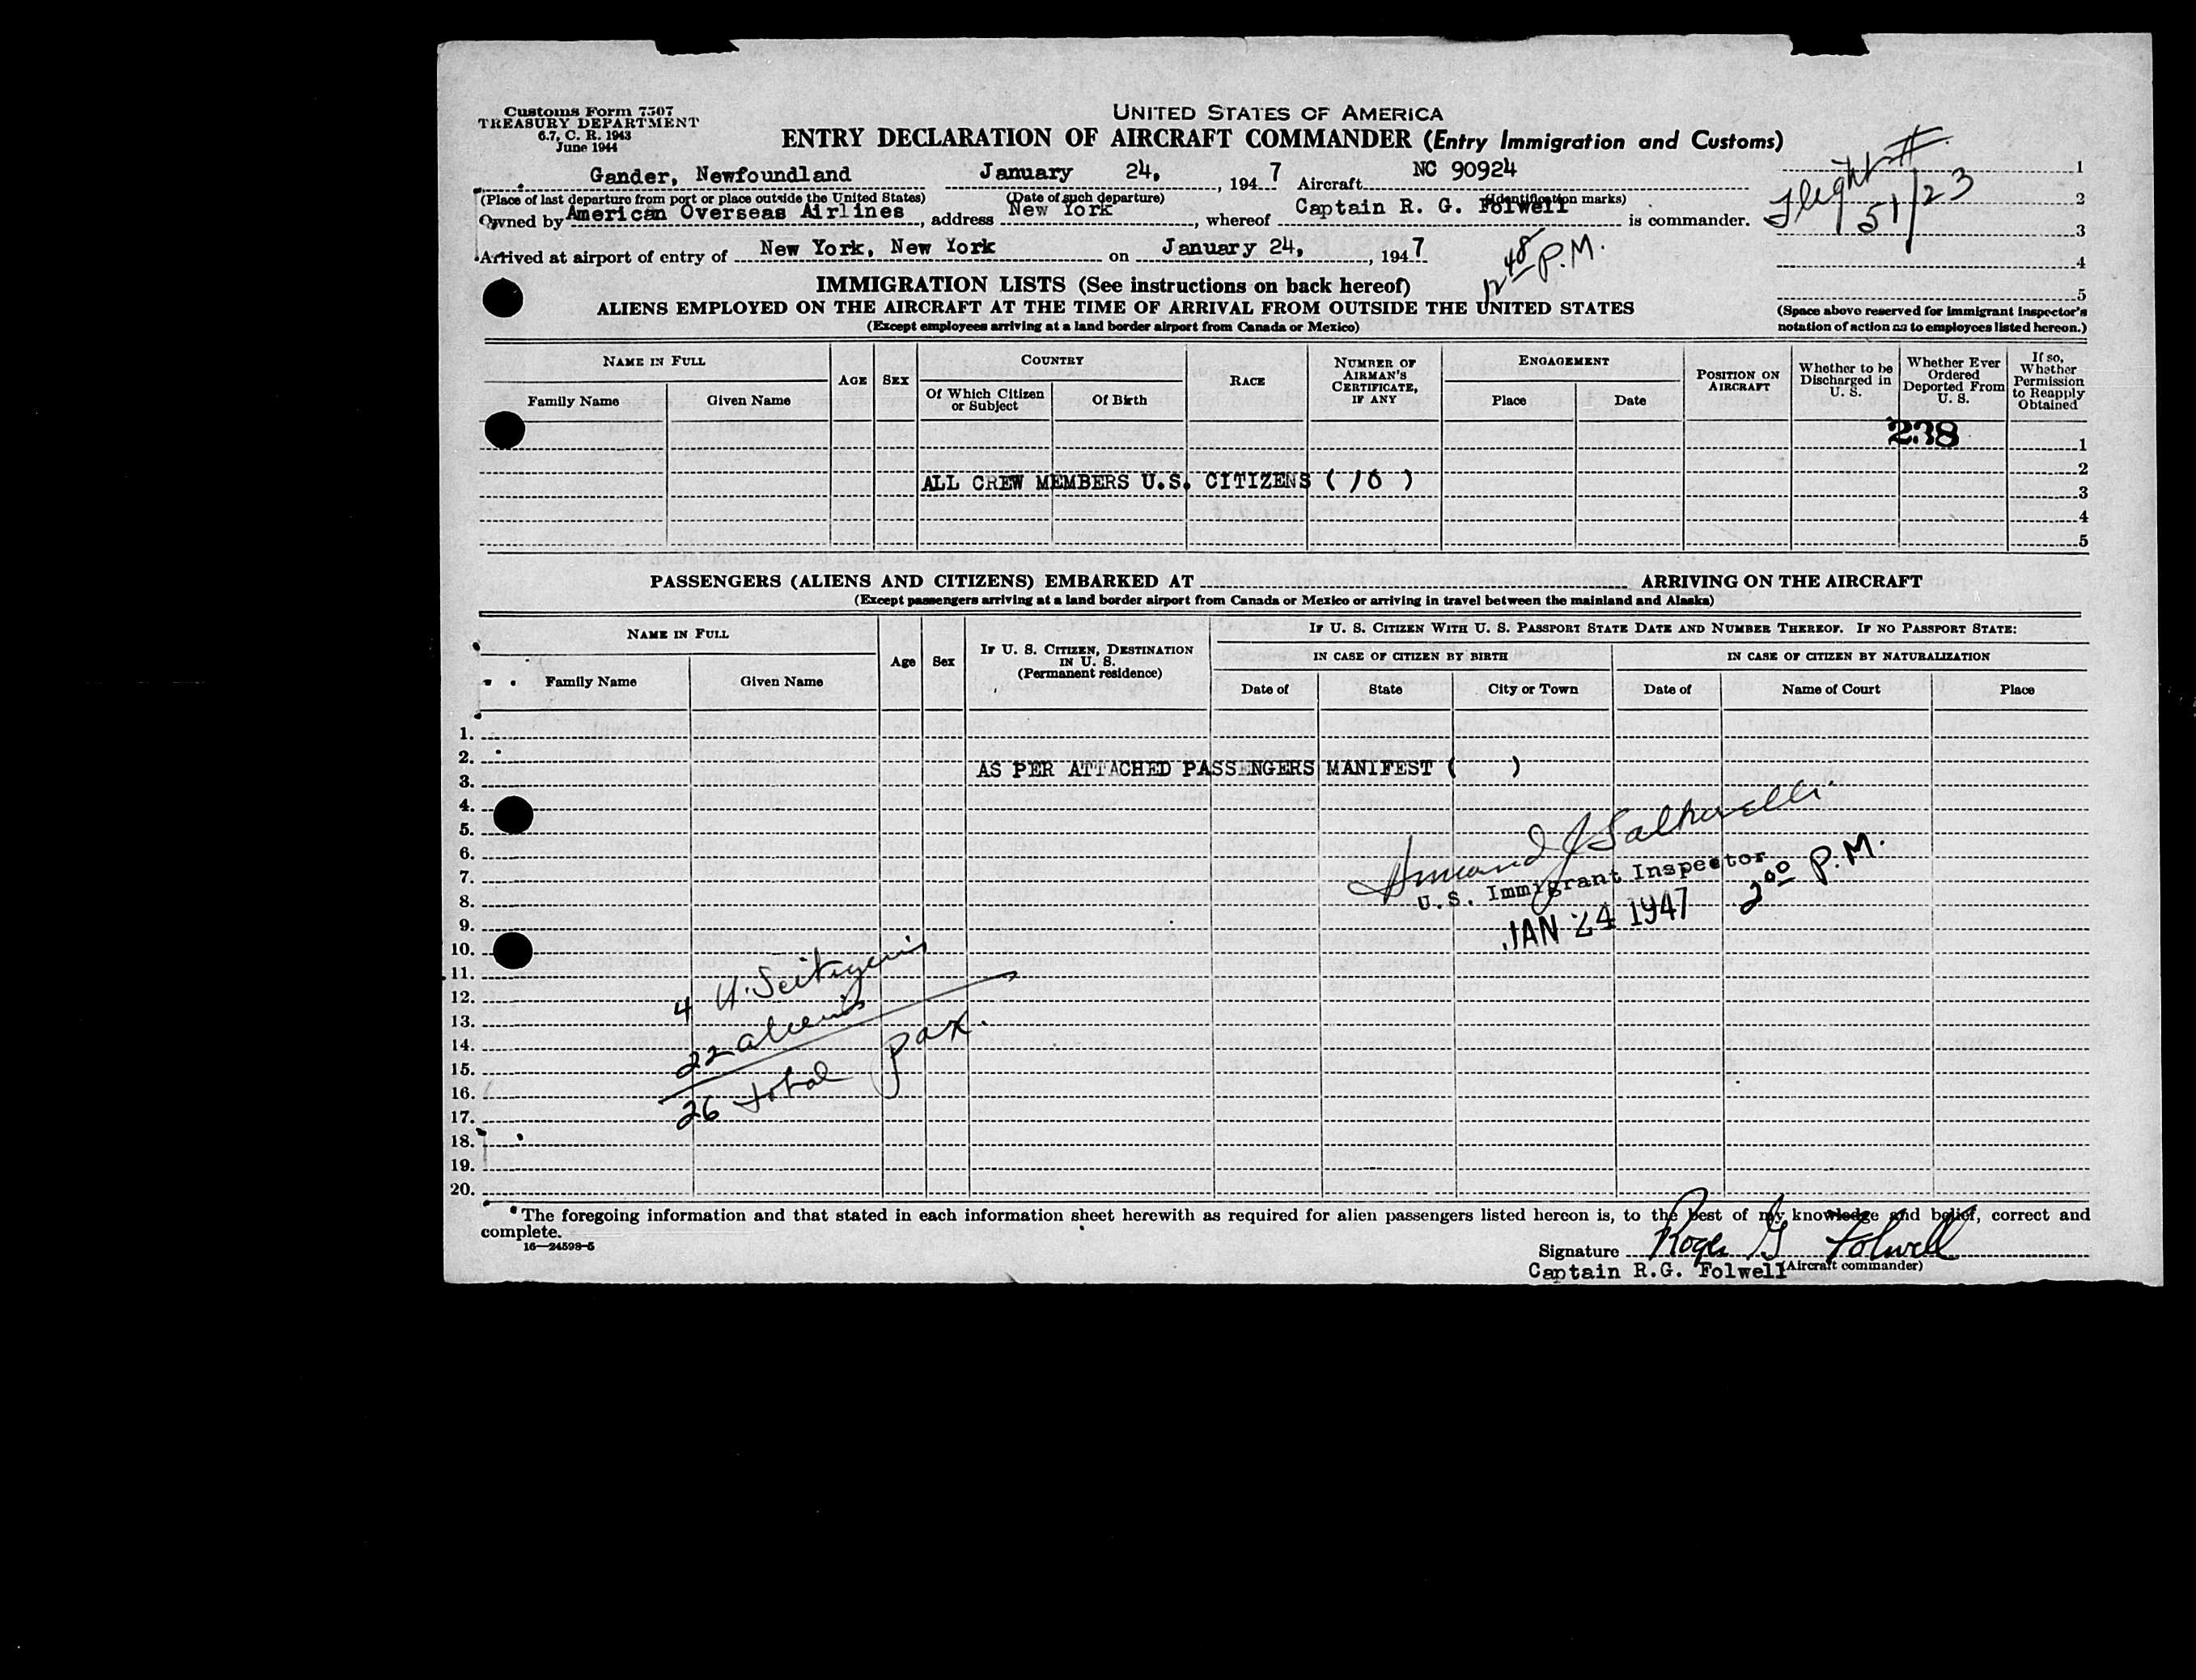 Customs Form 7507
TREASURY DEPARTMENT
6.7, C. R. 1943
June 1944
UNITED STATES OF AMERICA
ENTRY DECLARATION OF AIRCRAFT COMMANDER (Entry Immigration and Customs)
Gander, Newfoundland January 24, 1947 Aircraft NC 90924
(Place of last departure from port or place outside the United States) (Date of such departure) (Identification marks)
Owned by American Overseas Airlines, address New York, whereof Captain R. G. Folwell is commander.
Arrived at airport of entry of New York, New York on January 24, 1947
12 48 P.M.
Flight #
51/23
1
2
3
4
5
(Space above reserved for immigrant inspector's
notation of action as to employees listed hereon.)
IMMIGRATION LISTS (See instructions on back hereof)
ALIENS EMPLOYED ON THE AIRCRAFT AT THE TIME OF ARRIVAL FROM OUTSIDE THE UNITED STATES
(Except employees arriving at a land border airport from Canada or Mexico)
NAME IN FULL
Family Name Given Name
AGE
SEX
COUNTRY
Of Which Citizen or Subject
Of Birth
RACE
NUMBER OF AIRMAN'S CERTIFICATE, IF ANY
ENGAGEMENT
Place Date
POSITION ON AIRCRAFT
Whether to be Discharged in U. S.
Whether Ever Ordered Deported From U. S.
If so, Whether Permission to Reapply Obtained
238
1
2
ALL CREW MEMBERS U.S. CITIZENS ( 10 )
3
4
5
PASSENGERS (ALIENS AND CITIZENS) EMBARKED AT ARRIVING ON THE AIRCRAFT
(Except passengers arriving at a land border airport from Canada or Mexico or arriving in travel between the mainland and Alaska)
NAME IN FULL
Family Name Given Name
Age
Sex
IF U. S. CITIZEN, DESTINATION
IN U. S.
(Permanent residence)
IF U. S. CITIZEN WITH U. S. PASSPORT STATE DATE AND NUMBER THEREOF. IF NO PASSPORT STATE:
IN CASE OF CITIZEN BY BIRTH IN CASE OF CITIZEN BY NATURALIZATION
Date of State City or Town Date of Name of Court Place
1.
2.
AS PER ATTACHED PASSENGERS MANIFEST ( )
3.
4.
5.
6.
7.
8.
9.
10.
11.
12.
13.
14.
15.
16.
17.
18.
19.
20.
U.S. Immigrant Inspector
JAN 24 1947
2 00 P.M.
4 U.S citizens
22 aliens
26 total pax.
The foregoing information and that stated in each information sheet herewith as required for alien passengers listed hereon is, to the best of my knowledge and belief, correct and
complete.
16—24598-5
Signature Roger G Folwell
Captain R.G. Folwell (Aircraft commander)